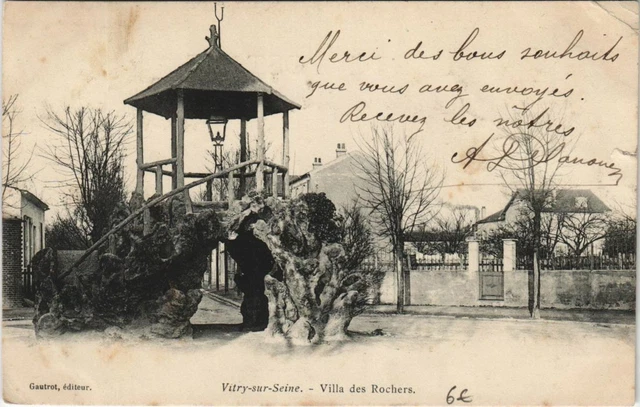 Merci des bons souhaits
que vous avez envoyés.
Recevez les nôtres
Vitry-sur-Seine. - Villa des Rochers.
Gautrot, éditeur.
6€